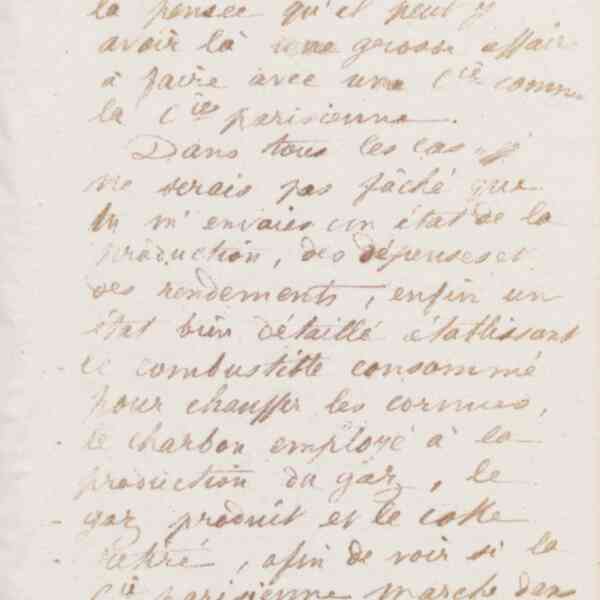 la pensée qu'il peut y
avoir là une grosse affaire
à faire avec une Cie comme
la Cie parisienne.
Dans tous les cas je
ne serais pas fâché que
tu m'envoies un état de la
production, des dépenses et
des rendements, enfin un
état bien détaillé établissant
le combustible consommé
pour chauffer les cornues,
le charbon employé à la
production du gaz, le
gaz produit et le coke
retiré, afin de voir si la
Cie parisienne marche dans